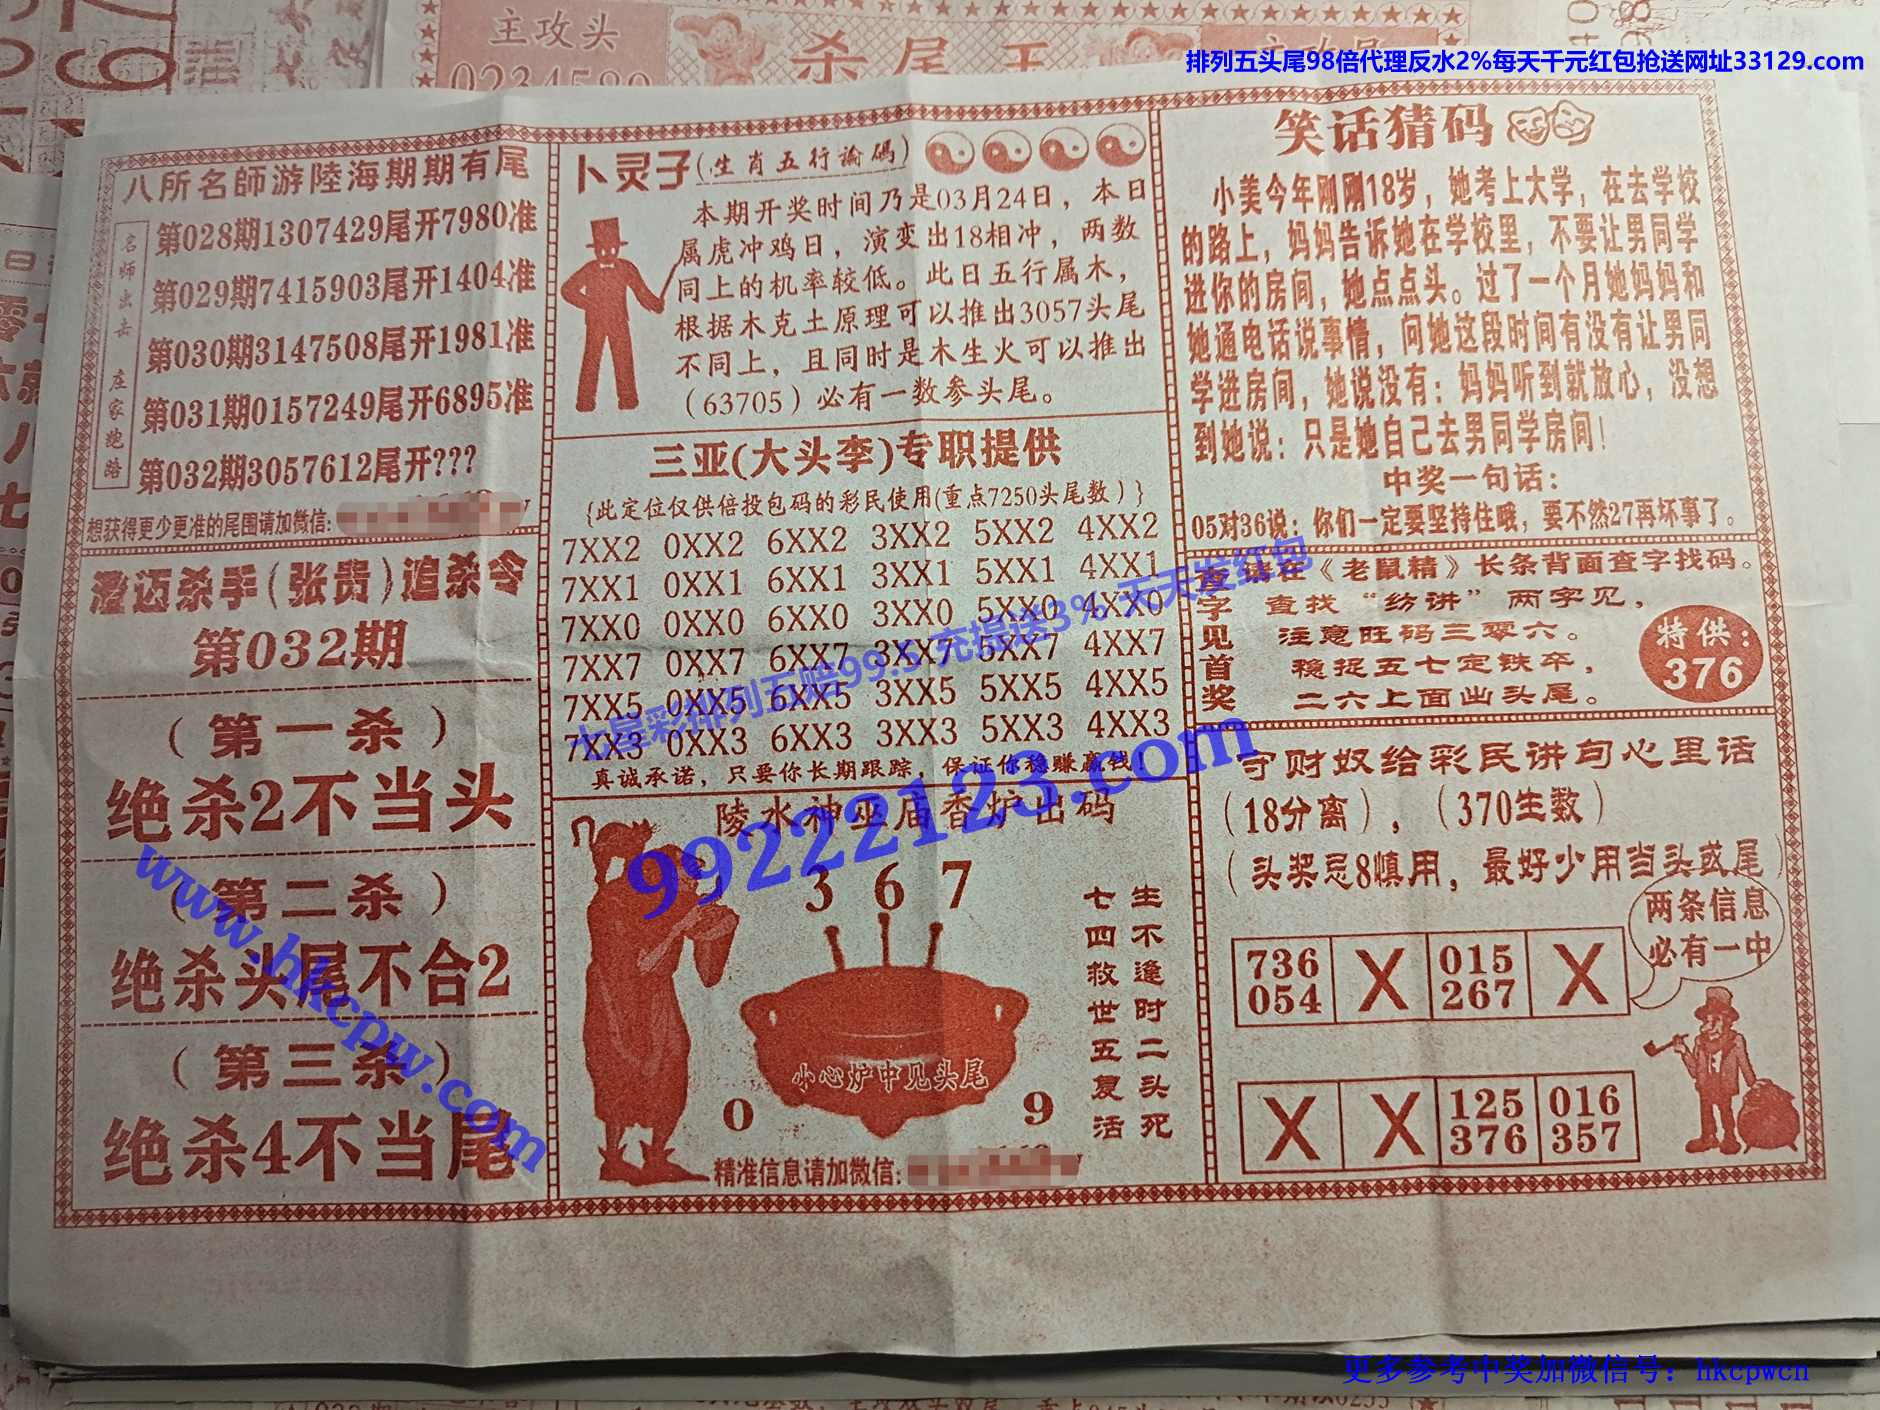 主攻头
杀尾王
排列五头尾98倍代理反水2%每天千元红包抢送网址33129.com
八所名師游陸海期期有尾
名师出击 庄家跑路
第028期1307429尾开7980准
第029期7415903尾开1404准
第030期3147508尾开1981准
第031期0157249尾开6895准
第032期3057612尾开???
想获得更少更准的尾围请加微信:
澄迈杀手(张贵)追杀令
第032期
(第一杀)
绝杀2不当头
(第二杀)
绝杀头尾不合2
(第三杀)
绝杀4不当尾
卜灵子(生肖五行谕码)
本期开奖时间乃是03月24日，本日
属虎冲鸡日，演变出18相冲，两数
同上的机率较低。此日五行属木，
根据木克土原理可以推出3057头尾
不同上，且同时是木生火可以推出
(63705)必有一数参头尾。
三亚(大头李)专职提供
{此定位仅供倍投包码的彩民使用(重点7250头尾数)}
7XX2 0XX2 6XX2 3XX2 5XX2 4XX2
7XX1 0XX1 6XX1 3XX1 5XX1 4XX1
7XX0 0XX0 6XX0 3XX0 5XX0 4XX0
7XX7 0XX7 6XX7 3XX7 5XX7 4XX7
7XX5 0XX5 6XX5 3XX5 5XX5 4XX5
7XX3 0XX3 6XX3 3XX3 5XX3 4XX3
真诚承诺，只要你长期跟踪，保证你稳赚赢钱!
陵水神巫庙香炉出码
3 6 7
生不逢时二头死
七四救世五复活
小心炉中见头尾
0 9
精准信息请加微信:
笑话猜码
小美今年刚刚18岁，她考上大学，在去学校
的路上，妈妈告诉她在学校里，不要让男同学
进你的房间，她点点头。过了一个月她妈妈和
她通电话说事情，问她这段时间有没有让男同
学进房间，她说没有；妈妈听到就放心，没想
到她说：只是她自己去男同学房间!
中奖一句话:
05对36说：你们一定要坚持住哦，要不然27再坏事了。
查字见首奖
请在《老鼠精》长条背面查字找码。
查找“纺讲”两字见，
注意旺码三零六。
稳捉五七定铁卒，
二六上面出头尾。
特供:
376
守财奴给彩民讲句心里话
(18分离)，(370生数)
(头奖忌8慎用，最好少用当头或尾)
两条信息
必有一中
736 X 015 X
054 267
X X 125 016
376 357
七星彩排列五赔99.5 充提送3% 天天发红包
99222123.com
www.hkcpw.com
更多参考中奖加微信号：hkcpwcn